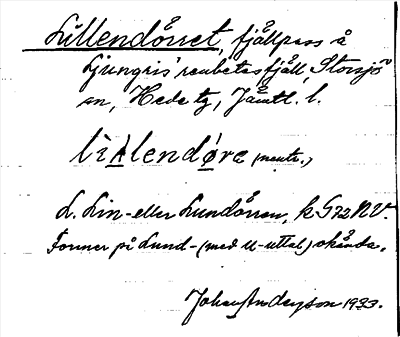 Lillendörret, fjällpass å
Ljungris' renbetesfjäll, Storsjö
sn, Hede tg, Jämtl. l.
li&lendøre (neutr.)
L. Lin- eller Lundörren, k. G 72 NV.
Former på Lund- (med u-uttal) okända.
Johan Andersson 1933.